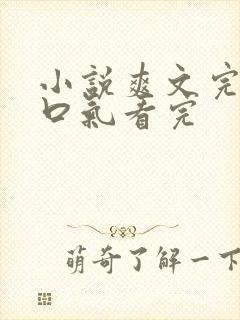 小説爽文完
口氣看完
萌奇了解一下